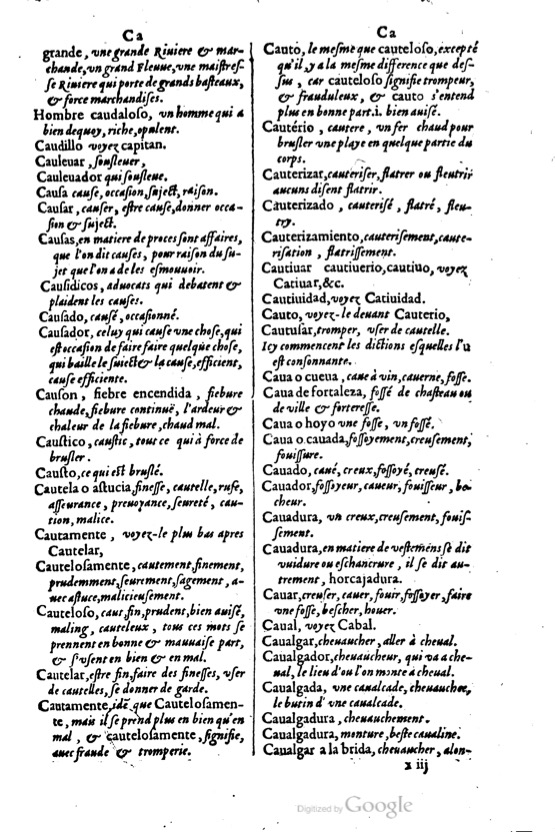 Ca
grande, vne grande Riuiere & mar-
chande, vn grand Fleuue, vne maistres-
se Riuiere qui porte de grands basteaux,
& force marchandises.
Hombre caudaloso, vn homme qui a
bien dequoy, riche, opulent.
Caudillo voyez capitan.
Cauleuar, sousleuer,
Cauleuador qui sousleue.
Causa cause, occasion, suject, raison.
Causar, causer, estre cause, donner occa-
sion & suject.
Causas, en matiere de proces sont affaires,
que l'on dit causes, pour raison du su-
jet que l'on a de les esmouuoir.
Causidicos, aduocats qui debatent &
plaident les causes.
Causado, causé, occasionné.
Causador, celuy qui cause vne chose, qui
est occasion de faire faire quelque chose,
qui baille le suiect & la cause, efficient,
cause efficiente.
Causon, fiebre encendida, fiebure
chaude, fiebure continuë, l'ardeur &
chaleur de la fiebure, chaud mal.
Caustico, caustic, tout ce qui à force de
brusler.
Causto, ce qui est bruslé.
Cautela o astucia, finesse, cautelle, ruse,
asseurance, preuoyance, seureté, cau-
tion, malice.
Cautamente, voyez-le plus bas apres
Cautelar,
Cautelosamente, cautement, finement,
prudemment, seurement, sagement, a-
uec astuce, malicieusement.
Cauteloso, caut, fin, prudent, bien auisé,
maling, cauteleux, tous ces mots se
prennent en bonne & mauuaise part,
& s'vsent en bien & en mal.
Cautelar, estre fin, faire des finesses, vser
de cautelles, se donner de garde.
Cautamente, idē que Cautelosamen-
te, mais il se prend plus en bien qu'en
mal, & cautelosamente, signifie,
auec fraude & tromperie.
Ca
Cauto, le mesme que cauteloso, excepté
qu'il y a la mesme difference que des-
sus, car cauteloso signifie trompeur,
& frauduleux, & cauto s'entend
plus en bonne part. i. bien auisé.
Cautério, cautere, vn fer chaud pour
brusler vne playe en quelque partie du
corps.
Cauterizar, cauteriser, flatrer ou fleutrir
aucuns disent flatrir.
Cauterizado, cauterisé, flatré, fleu-
try.
Cauterizamiento, cauterisement, caute-
risation, flatrissement.
Cautiuar cautiuerio, cautiuo, voyez
Catiuar, &c.
Cautiuidad, voyez Catiuidad.
Cauto, voyez-le deuant Cauterio,
Cautusar, tromper, vser de cautelle.
Icy commencent les dictions esquelles l'u
est consonnante.
Caua o cueua, caue à vin, cauerne, fosse.
Caua de fortaleza, fossé de chasteau ou
de ville & forteresse.
Caua o hoyo vne fosse, vn fossé.
Caua o cauada, fossoyement, creusement,
fouissure.
Cauado, caué, creux, fossoyé, creusé.
Cauador, fossoyeur, caueur, fouisseur, be-
cheur.
Cauadura, vn creux, creusement, fouis-
sement.
Cauadura, en matiere de vestemēs se dit
vuidure ou eschancrure, il se dit au-
trement, horcajadura.
Cauar, creuser, cauer, fouir, fossoyer, faire
vne fosse, bescher, houer.
Caual, voyez Cabal.
Caualgar, cheuaucher, aller à cheual.
Caualgador, cheuaucheur, qui va a che-
ual, le lieu d'ou l'on monte à cheual.
Caualgada, vne caualcade, cheuauchee,
le butin d'vne caualcade.
Caualgadura, cheuauchement.
Caualgadura, monture, beste caualine.
Caualgar a la brida, cheuaucher, alon-
x iij
Digitized by Google